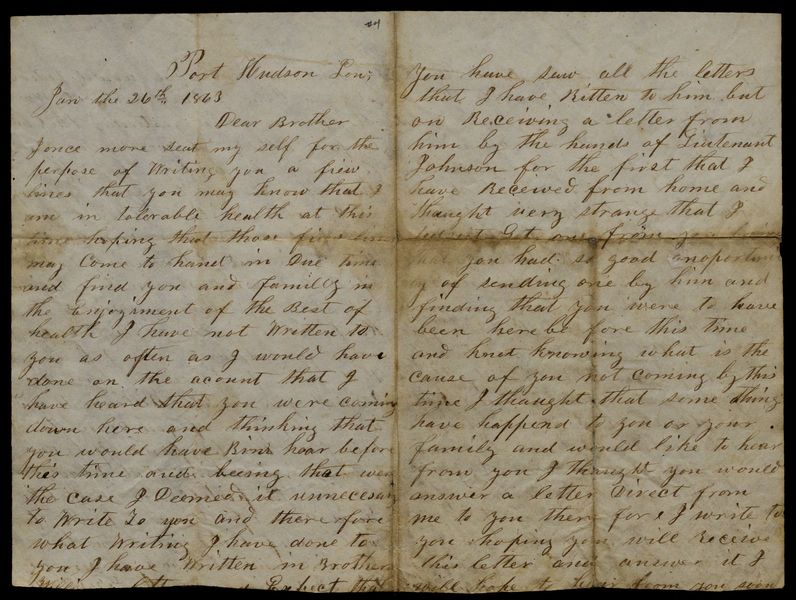 #4
Port Hudson Lou,
Jan the 26th, 1863
Dear Brother
I once more seat my self for the
perpose of Writing you a fiew
lines that you may know that I
am in tolorable health at this
time hoping that those fiew lines
may Come to hand in Due time
and find you and familly in
the enjoyiment of the Best of
health I have not Written to
you as often as I would have
done on the acount that I
have heard that you were coming
down here and thinking that
you would have Bin hear before
this time and beeing that were
the case I Deemed it unnecesary
to Write To you and there fore
what Writing I have done to
you I have Written in Brother
Expect that
You have saw all the letters
that I have Ritten to him but
on Receiving a letter from
him by the hands of Liutenant
Johnson for the first that I
have Received from home and
thaught very strange that I
get one from you
that you had so good anoportun
ty of sending one by him and
finding that you were to have
been here be fore this time
and knot knowing what is the
cause of you not coming by this
time I thaught that some thing
have happend to you or your
family and would like to hear
from you I thaught you would
answer a letter Direct from
me to you there for I write to
you hoping you will Receive
this letter and answer it I
will hope to hear from you soon